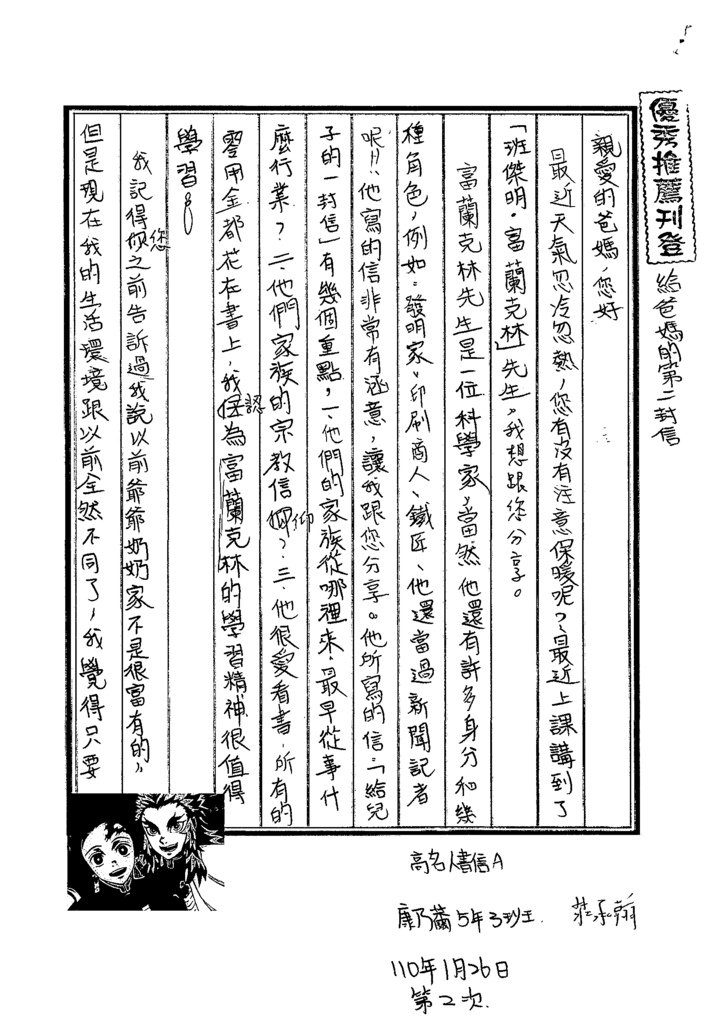 優秀推薦刊登
給爸媽的第二封信
親愛的爸媽，您好
最近天氣忽冷忽熱，您有沒有注意保暖呢？最近上課講到了
「班傑明·富蘭克林」先生，我想跟您分享。
富蘭克林先生是一位科學家，當然他還有許多身分和幾
種角色，例如：發明家、印刷商人、鐵匠、他還當過新聞記者
呢！！他寫的信非常有涵意，讓我跟您分享。他所寫的信：「給兒
子的一封信」有幾個重點，一、他們的家族從哪裡來，最早從事什
麼行業？二、他們家族的宗教信仰？三、他很愛看書，所有的
零用金都花在書上，我認為富蘭克林的學習精神很值得
學習。
我記得您之前告訴過我說以前爺爺奶奶家不是很富有的，
但是現在我的生活環境跟以前全然不同了，我覺得只要
高名人書信A
康乃薾5年3班
莊承
110年1月26日
第2次